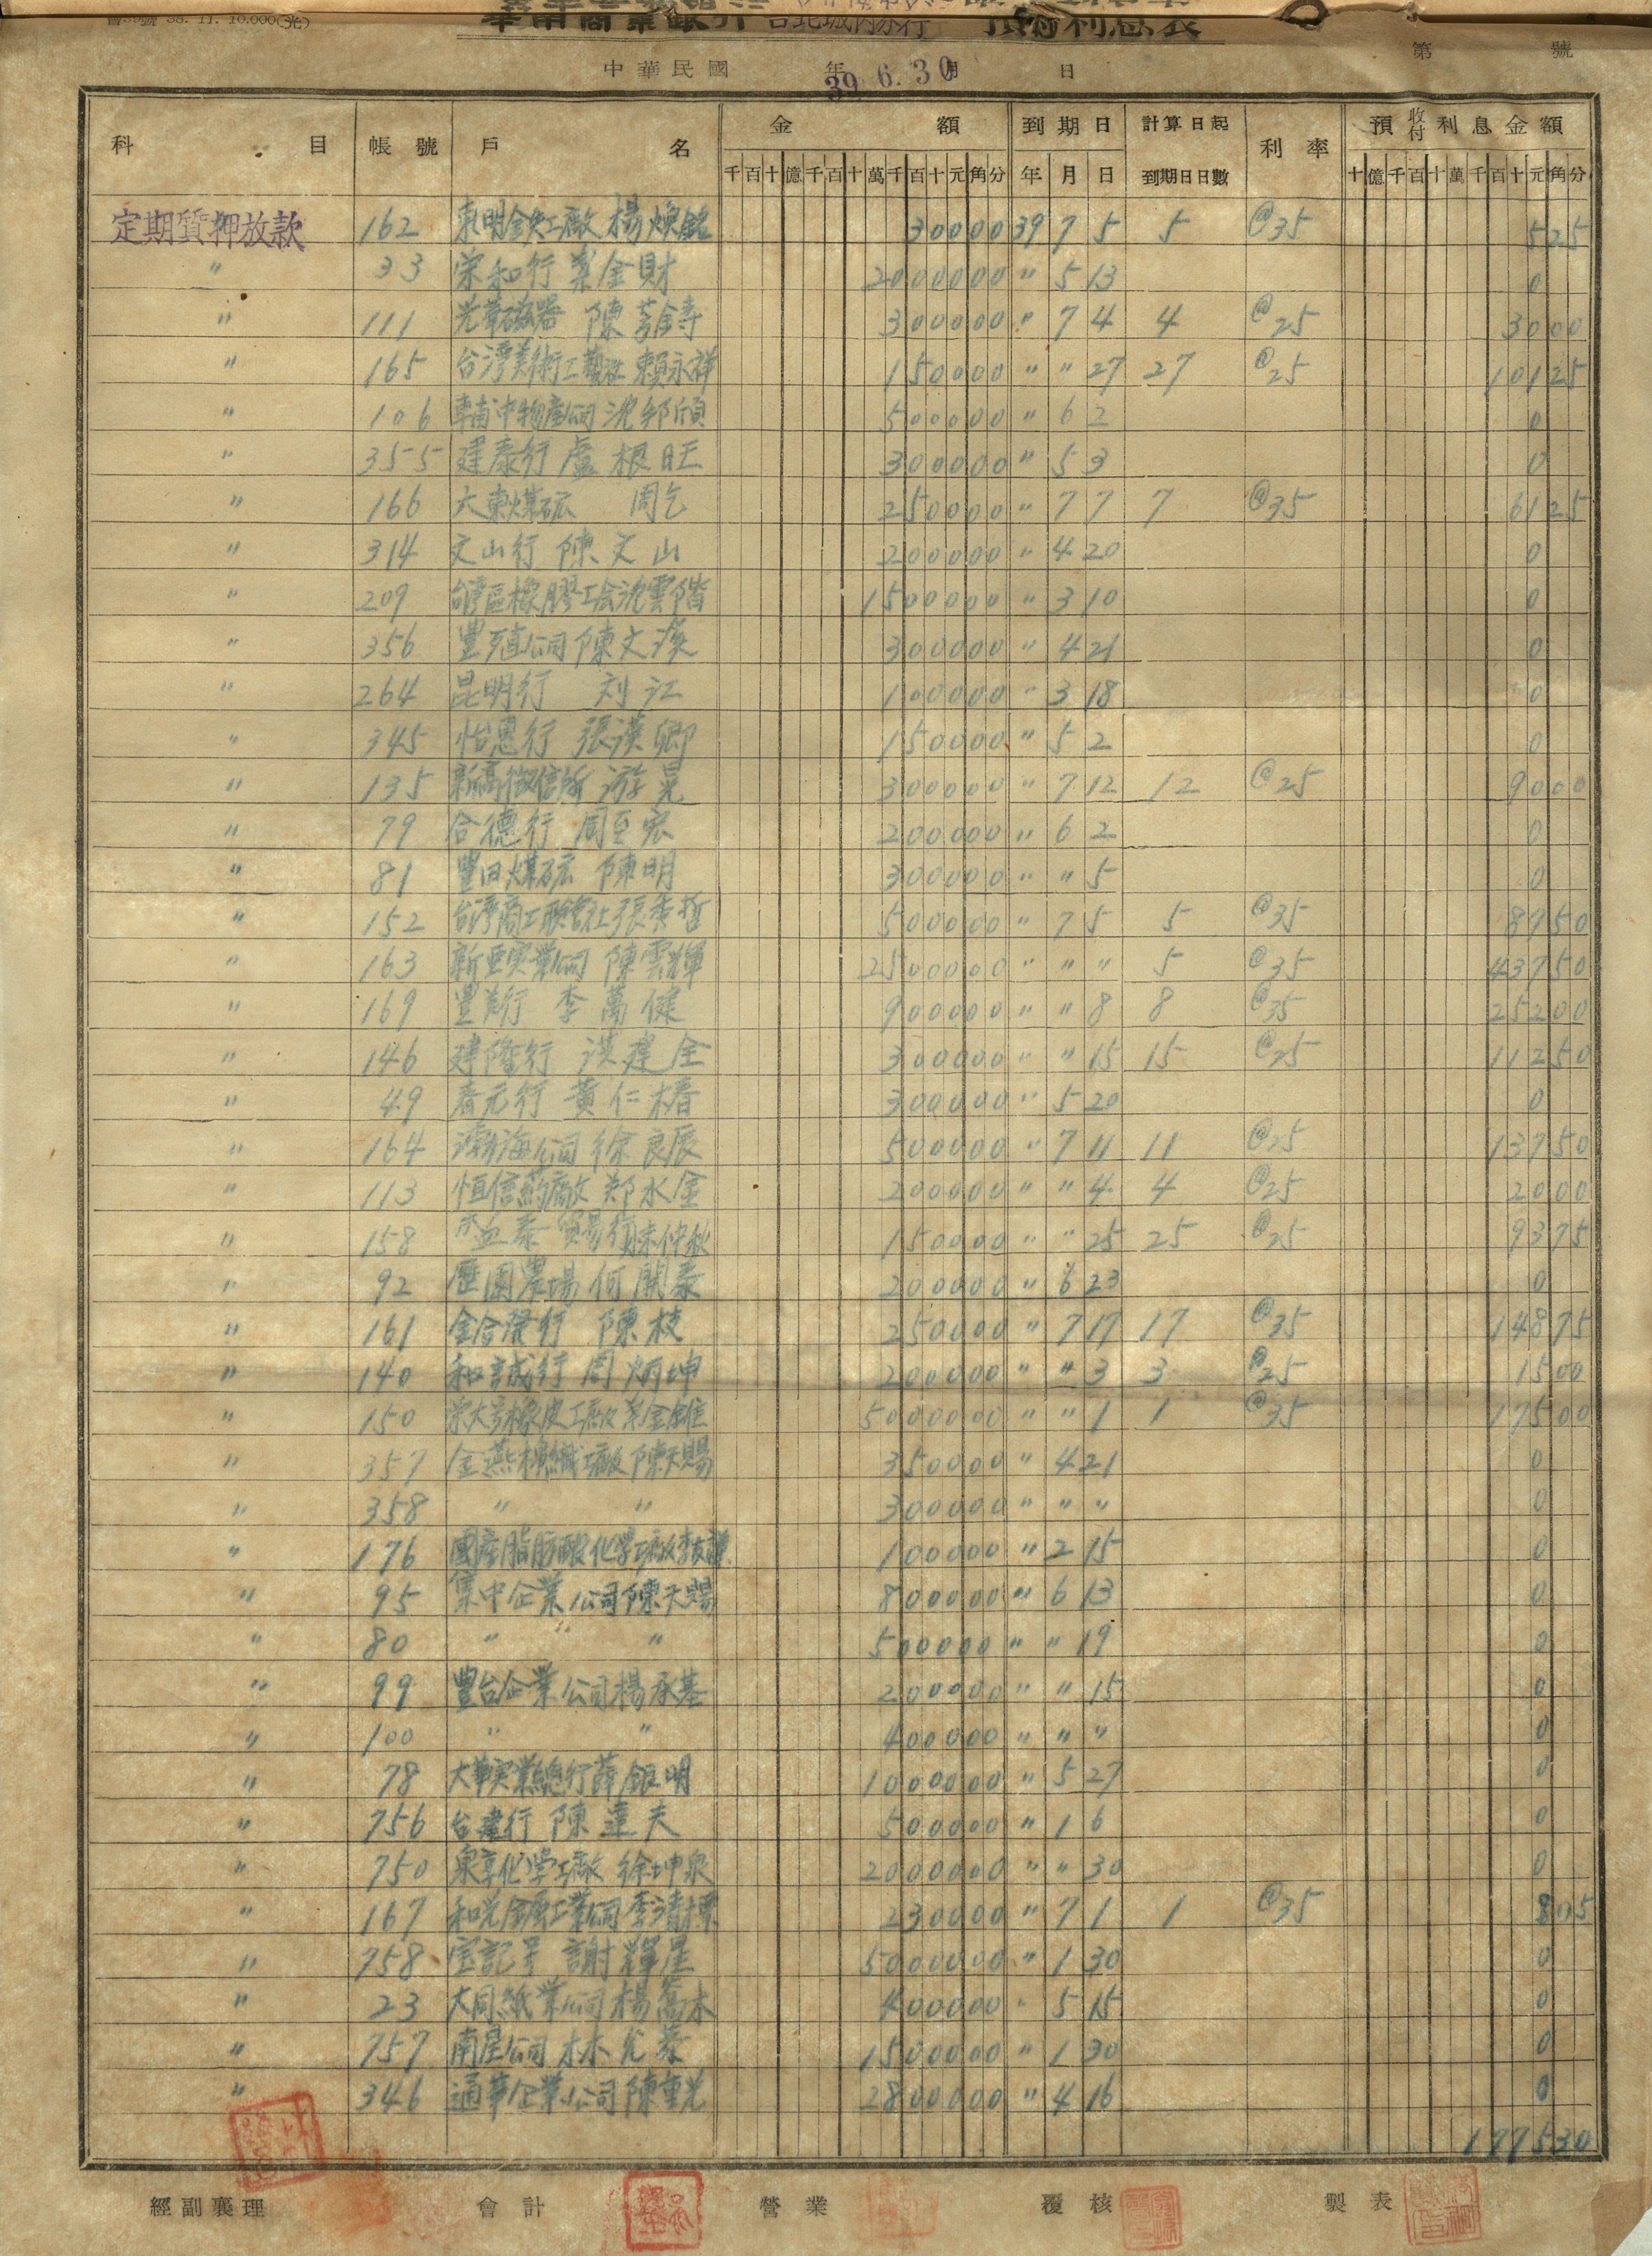 38. 11. 10,000(光)
華南商業銀行 台北城內分行 預 利息表
中華民國 年 月 日
39. 6. 30
第 號
科 目 帳號 戶 名 金 額 到期日 計算日起到期日日數 利率 預收付利息金額
千百十億千百十萬千百十元角分 年 月 日 十億千百十萬千百十元角分
定期質押放款 162 東明金工廠 楊煥銘 30000 39 7 5 5 @35 525
〃 33 榮和行 葉金財 2000000 〃 5 13 0
〃 111 光華磁器 陳 300000 〃 7 4 4 @25 3000
〃 165 台灣美術工藝社 賴永祥 150000 〃 〃 27 27 @25 10125
〃 106 專南中物產公司 沈 500000 〃 6 2 0
〃 355 建泰行 盧根旺 300000 〃 5 3 0
〃 166 大東煤礦 周乞 250000 〃 7 7 7 @35 6125
〃 314 文山行 陳文山 200000 〃 4 20 0
〃 209 台灣區橡膠工會 沈雲階 1500000 〃 3 10 0
〃 356 豐殖公司 陳文 300000 〃 4 21 0
〃 264 昆明行 刘江 100000 〃 3 18 0
〃 345 怡恩行 張漢卿 150000 〃 5 2 0
〃 135 新高徵信所 游晃 300000 〃 7 12 12 @25 9000
〃 79 合德行 周至宏 200000 〃 6 2 0
〃 81 豐田煤礦 陳明 300000 〃 〃 5 0
〃 152 台灣商工聯合社 張秀哲 500000 〃 7 5 5 @35 8750
〃 163 新亞実業公司 陳雲輝 2500000 〃 〃 〃 5 @35 43750
〃 169 豐美行 李萬健 900000 〃 〃 8 8 @35 25200
〃 146 建隆行 洪建全 300000 〃 〃 15 15 @25 11250
〃 49 春元行 黃仁椿 300000 〃 5 20 0
〃 164 渤海公司 徐良辰 500000 〃 7 11 11 @25 13750
〃 113 恒信藥廠 鄭水金 200000 〃 〃 4 4 @25 2000
〃 158 益泰貿易行 陳仲秋 150000 〃 〃 25 25 @25 9375
〃 92 歷園農場 何開泰 200000 〃 6 23 0
〃 161 金合發行 陳枝 250000 〃 7 17 17 @35 14875
〃 140 和誠行 周炳坤 200000 〃 〃 3 3 @25 1500
〃 150 榮大号橡皮工廠 葉金錐 5000000 〃 〃 1 1 @35 17500
〃 357 金燕棉織工廠 陳天賜 350000 〃 4 21 0
〃 358 〃 〃 300000 〃 〃 〃 0
〃 176 國產脂肪酸化學工廠 李友謙 100000 〃 2 15 0
〃 95 集中企業公司 陳天賜 800000 〃 6 13 0
〃 80 〃 〃 500000 〃 〃 19 0
〃 99 豐台企業公司 楊承基 200000 〃 〃 15 0
〃 100 〃 〃 400000 〃 〃 〃 0
〃 78 大華実業總行 薛銀明 1000000 〃 5 27 0
〃 756 台建行 陳達夫 500000 〃 1 6 0
〃 750 泉享化學工廠 徐坤泉 2000000 〃 〃 30 0
〃 167 和光金屬工業公司 李清標 230000 〃 7 1 1 @35 805
〃 758 宝記号 謝輝星 5000000 〃 1 30 0
〃 23 大同紙業公司 楊喬木 400000 〃 5 15 0
〃 757 南星公司 林允泰 1500000 〃 1 30 0
〃 346 通華企業公司 陳重光 2800000 〃 4 16 0
177530
經副襄理 會計 營業 覆核 製表